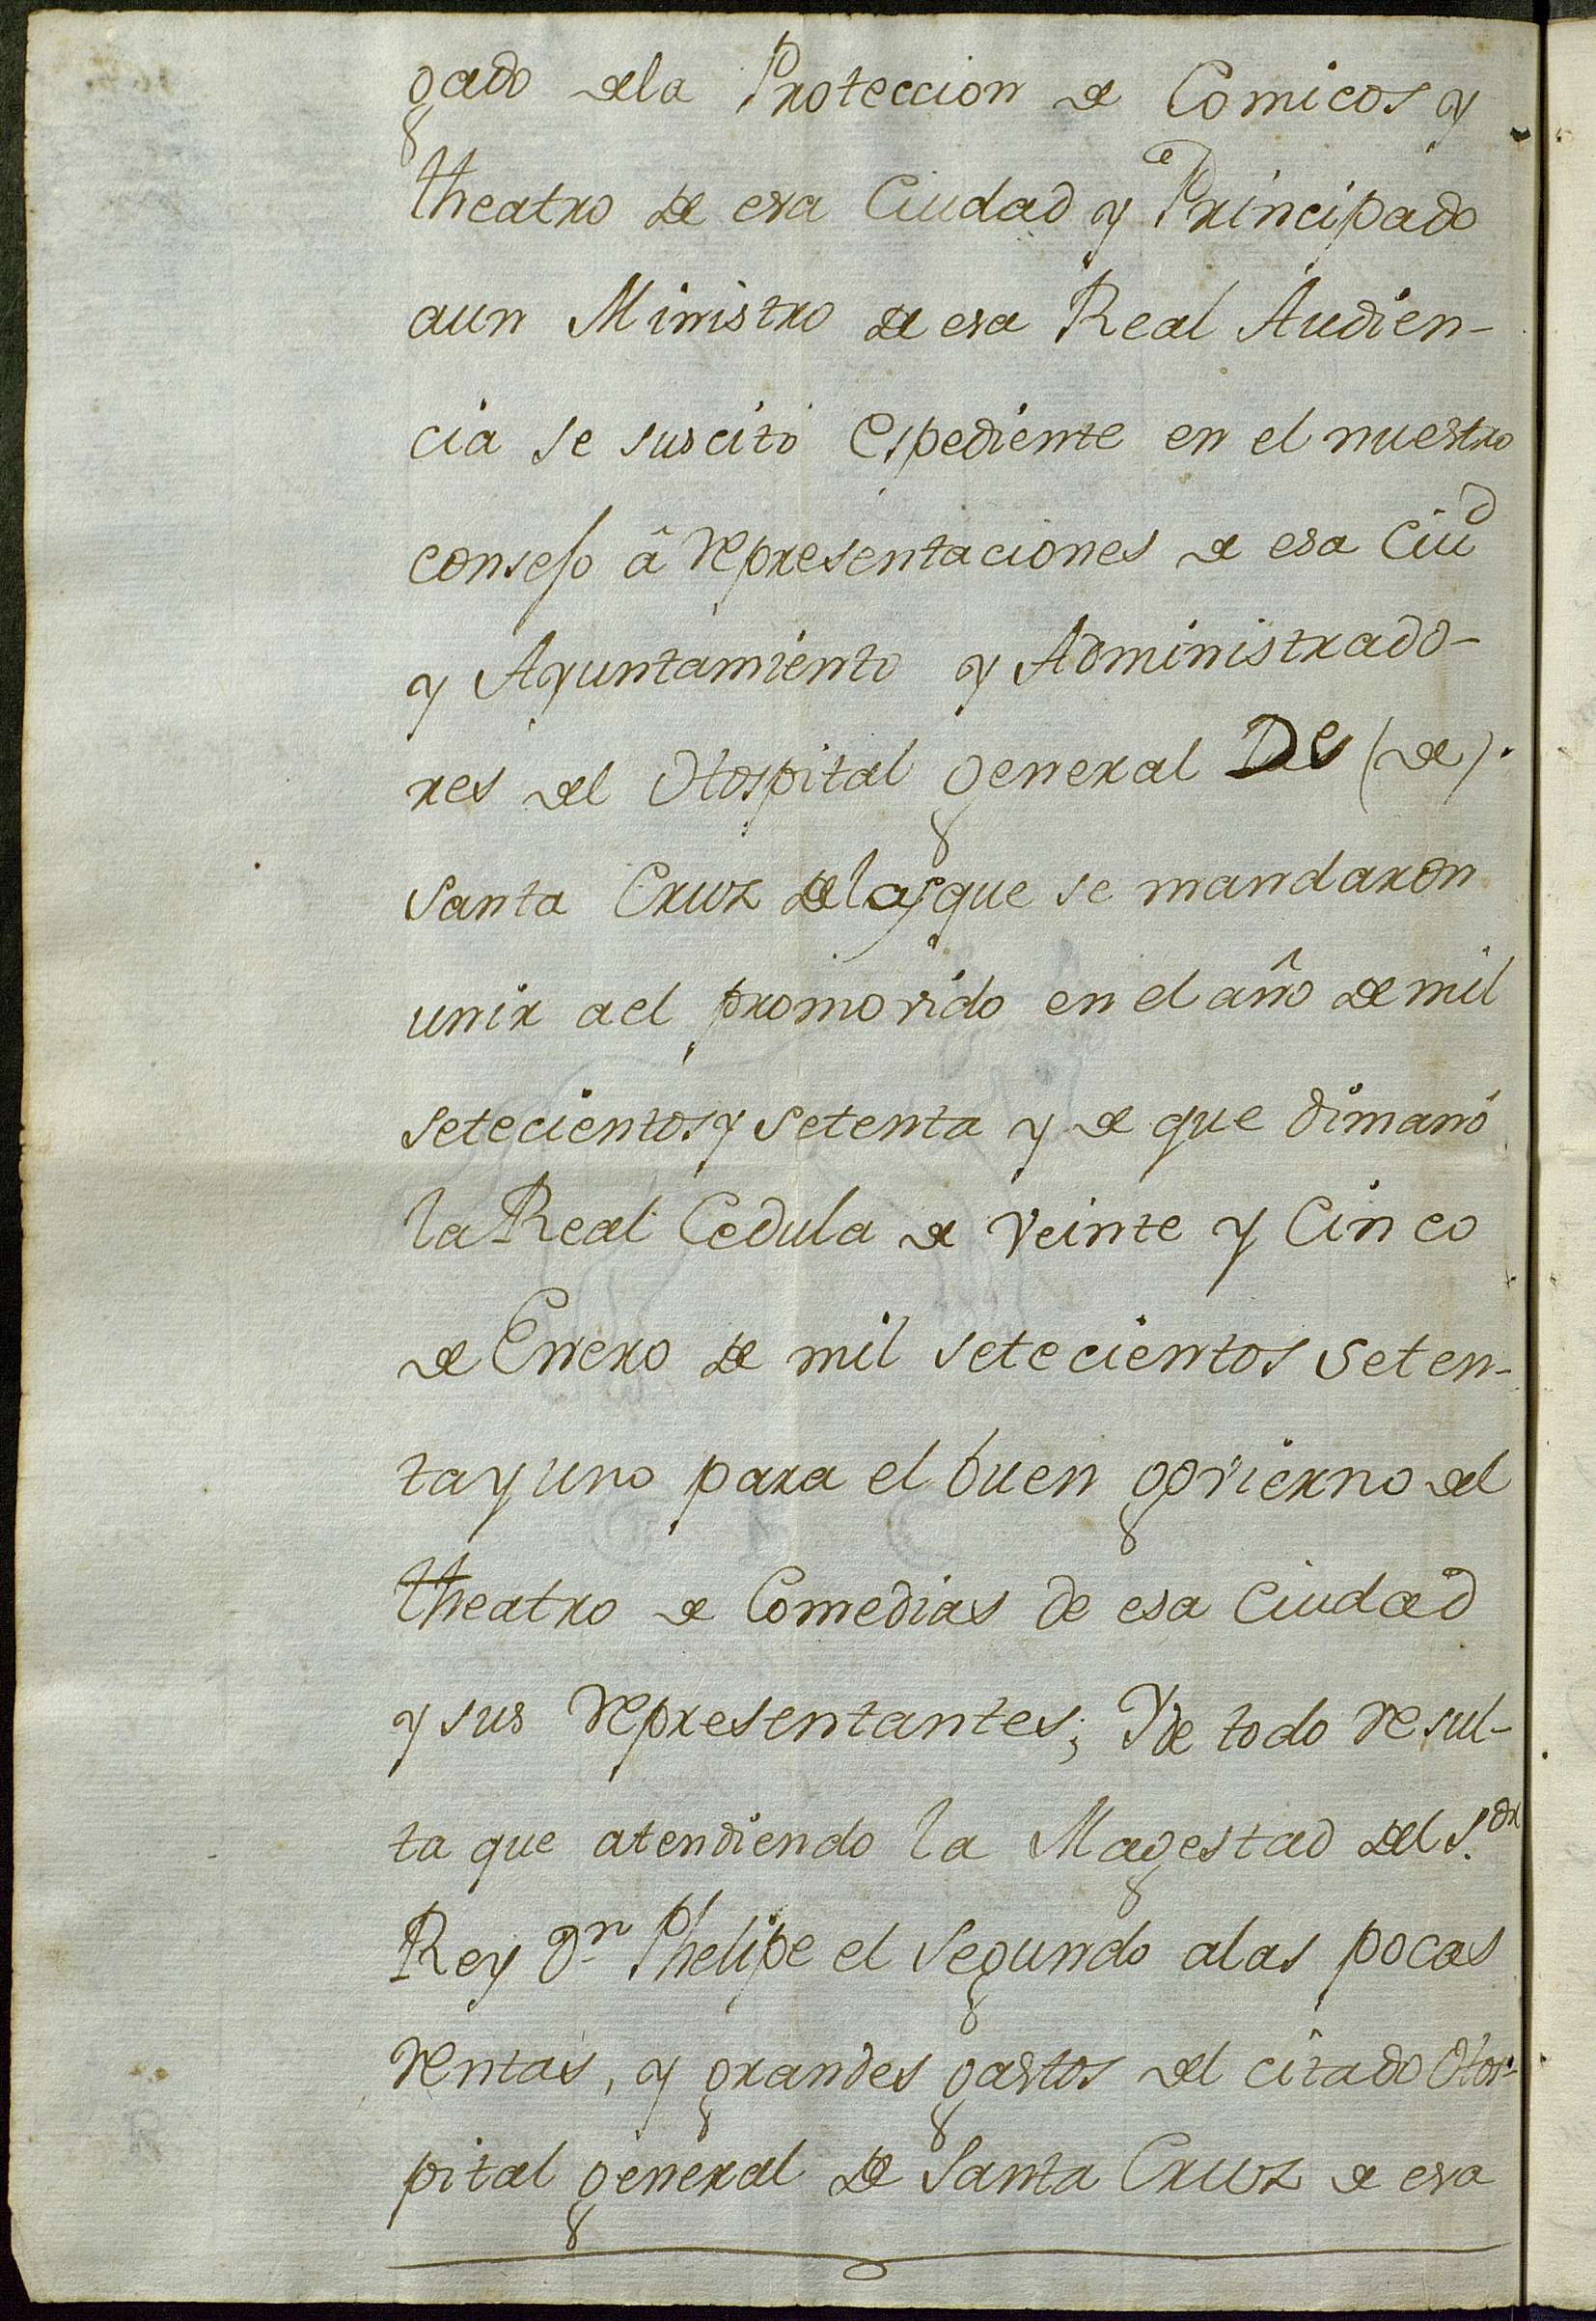 gado dela Proteccion de Comicos y
theatro de esa Ciudad y Principado
aun Ministro de esa Real Audien-
cia se suscitó Espediente en el nuestro
consejo â representaciones de esa Ciud
y Ayuntamiento y Administrado-
res del Hospital general De (de).
Santa Cruz delas que se mandaron
unir ael promovido en el año de mil
setecientos y setenta y de que dimanó
la Real Cedula de veinte y Cinco
de Enero de mil setecientos seten-
ta y uno para el buen govierno del
theatro de Comedias de esa Ciudad
y sus representantes; Y de todo resul-
ta que atendiendo la Magestad del S.or
Rey Dn Phelipe el Segundo alas pocas
rentas, y grandes gastos del citado Hos-
pital general de Santa Cruz de esa